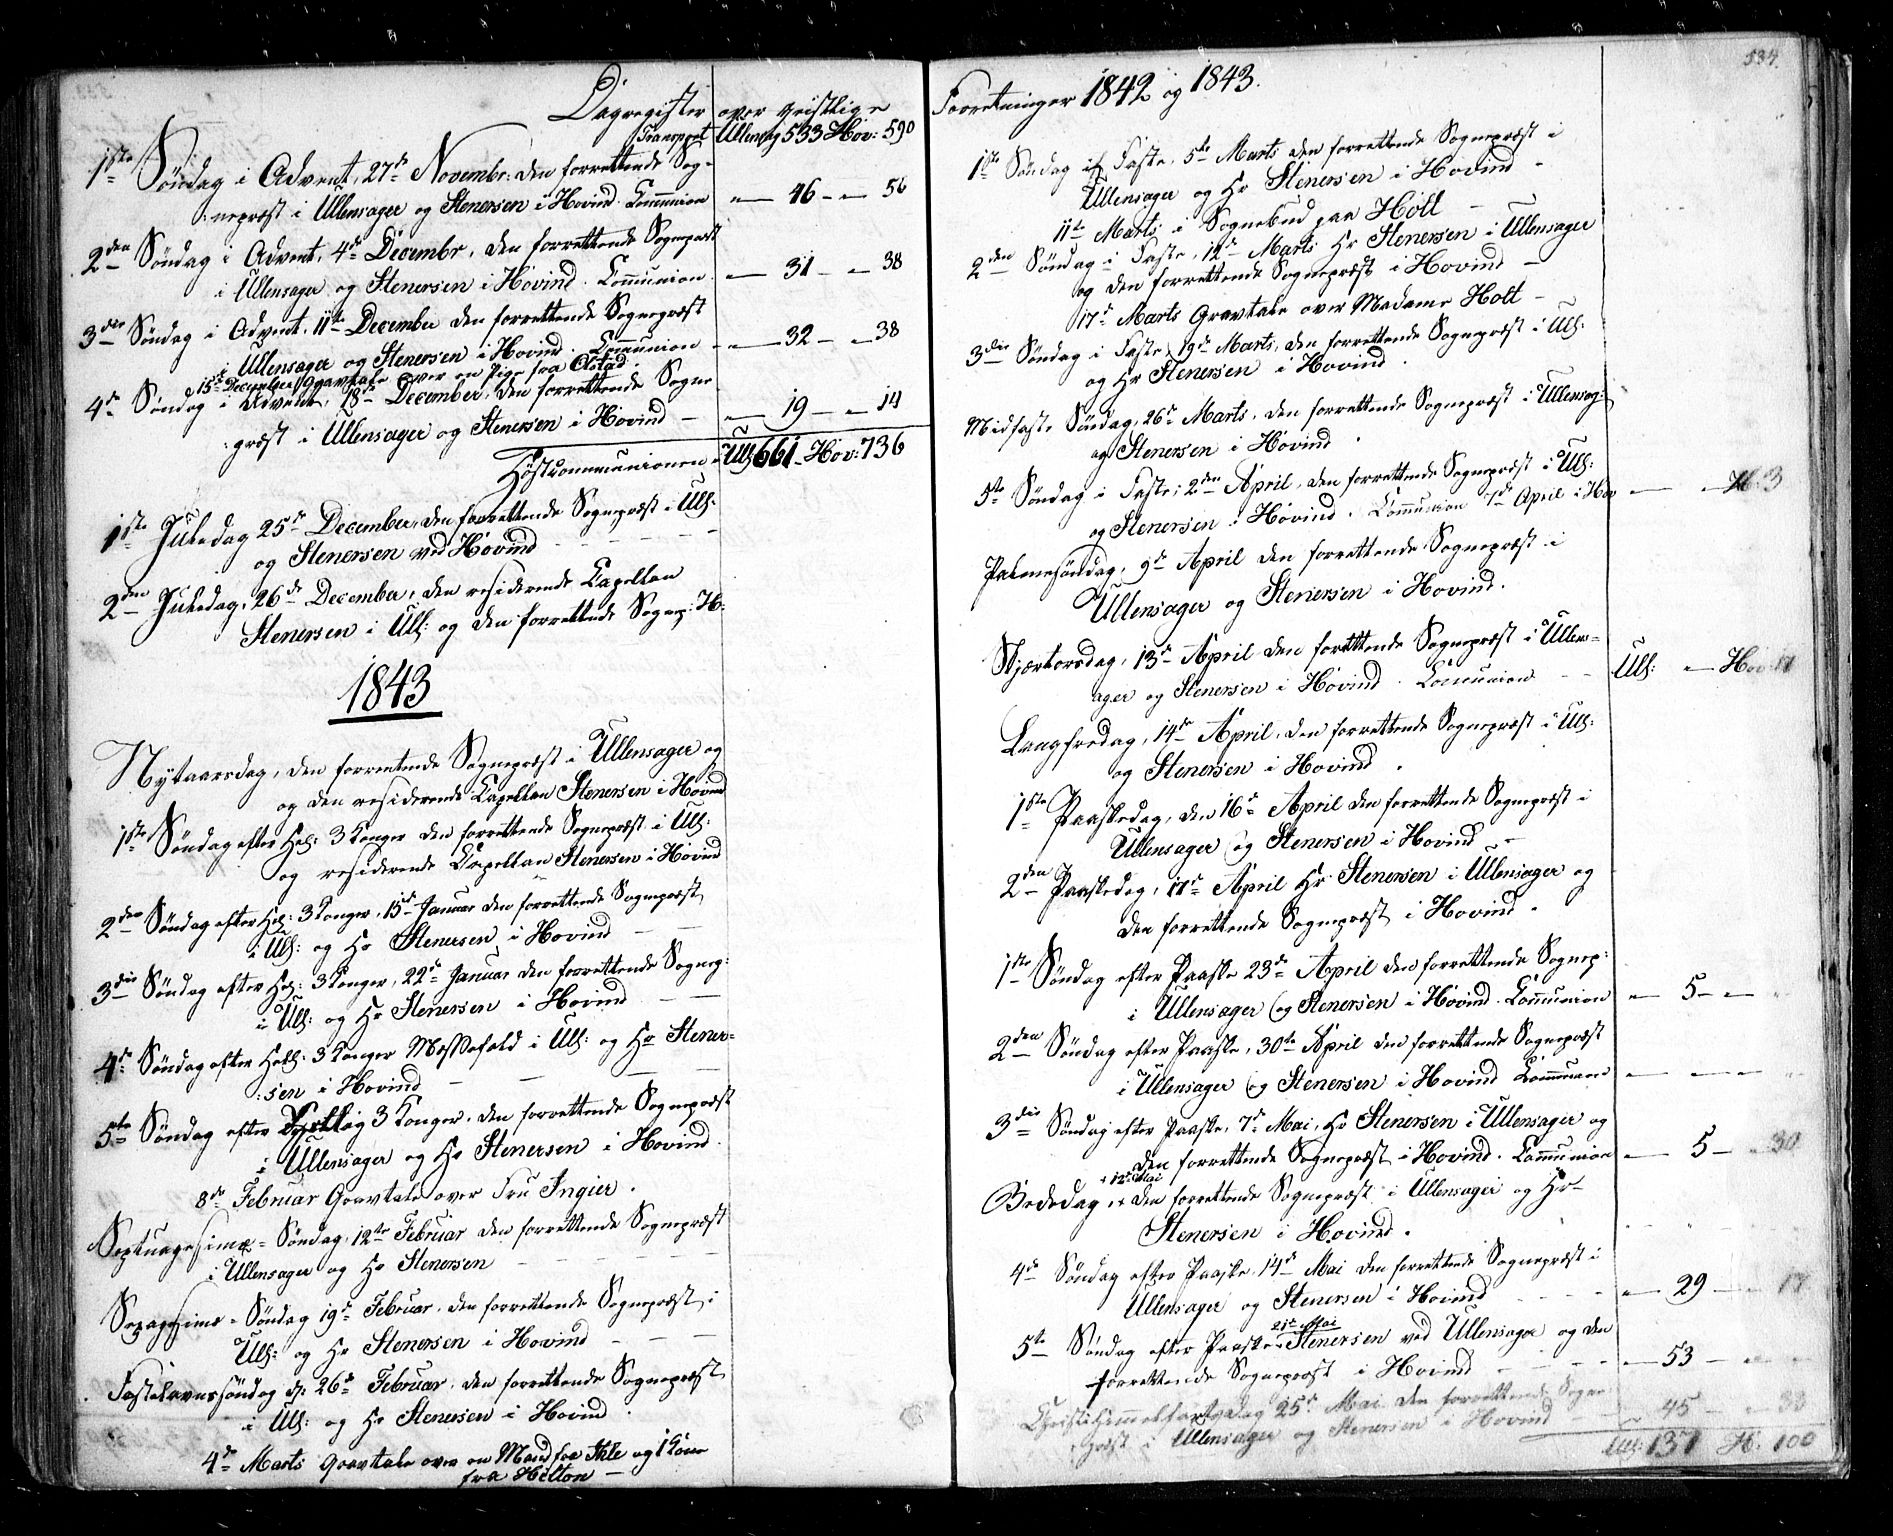 Dagregister over geistlige
Transport Ullensag 533 Hov: 590
1ste Søndag i Advent, 27de Novembr: den forrettende Sog-
:nepræst i Ullensager og Stenersen i Hovind. Communion — 46 — 56
2den Søndag i Advent, 4de Decembr, den forrettende Sognepræst
i Ullensager og Stenersen i Hovind. Communion — 31 — 38
3die Søndag i Advent, 11te December den forrettende Sognepræst
i Ullensager og Stenersen i Hovind. Communion — 32 — 38
15de December Gravtale over en Pige fra Alstad.
4de Søndag i Advent, 18de December, den forrettende Sogne
:præst i Ullensager og Stenersen i Hovind — 19 — 14
Høstcommunionen Ull: 661 - Hov: 736
1ste Juledag 25de December, den forrettende Sognepræst i Ull:
og Stenersen ved Hovind
2den Juledag, 26de December, den residerende Capellan
Stenersen i Ull: og den forrettende Sognep: H:
1843
Nytaarsdag, den forrentende Sognepræst i Ullensager og
og den residerende Capellan Stenersen i Hovind
1ste Søndag efter Hel: 3 Konger den forrettende Sognepræst i Ull:
og residerende Capellan Stenersen i Hovind
2den Søndag efter Hel: 3 Konger, 15de Januar den forrettende Sognepræst
i Ull: og Hr Stenersen i Hovind
3die Søndag efter Hel: 3 Konger, 22de Januar den forrettende Sognep:
i Ull: og Hr Stenersen i Hovind
4de Søndag efter Hell: 3 Konger Messefald i Ull: og Hr Stener-
:sen i Hovind
5te Søndag efter 3 Konger, den forrettende Sognepræst
i Ullensager og Hr Stenersen i Hovind.
8de Februar Gravtale over Fru Ingier.
Septuagesimæ - Søndag, 12te Februar den forrettende Sognepræst
i Ullensager og Hr Stenersen
Sexagesimæ - Søndag 19de Februar, den forrettende Sognepræst i
Ull: og Hr Stenersen i Hovind
Fastelavnssøndag d: 26de Februar, den forrettende Sognepræst
i Ull: og Hr Stenersen i Hovind.
4de Marts Gravtale over en Mand fra og 1 Kone
fra Hilton
534.
Forretninger 1842 og 1843.
1ste Søndag i Faste, 5te Marts den forrettende Sognepræst i
Ullensager og Hr Stenersen i Hovind
11te Marts i Sognebud paa Holt
2den Søndag i Faste, 12te Marts Hr Stenersen i Ullensager
og den forrettende Sognepræst i Hovind
17de Marts Gravtale over Madame Holt
3die Søndag i Faste, 19de Marts, den forrettende Sognepræst i Ull:
og Hr Stenersen i Hovind.
Midfaste Søndag, 26de Marts, den forrettende Sognepræst i Ullensag:
og Stenersen i Hovind.
5te Søndag i Faste, 2den April, den forrettende Sognepræst i Ull:
og Stenersen i Hovind. Communion 7de April i Hov — H. 3
Palmesøndag, 9de April den forrettende Sognepræst i
Ullensager og Stenersen i Hovind.
Skjærtorsdag, 13de April den forrettende Sognepræst i Ullens-
ager og Stenersen i Hovind. Communion Ull: — Hov:
Langfredag, 14de April, den forrettende Sognepræst i Ull:
og Stenersen i Hovind.
1ste Paaskedag, den 16de April den forrettende Sognepræst i
Ullensager og Stenersen i Hovind
2den Paaskedag, 17de April Hr Stenersen i Ullensager og
den forrettende Sognepræst i Hovind.
1ste Søndag efter Paaske 23de April den forrettende Sognep:
i Ullensager og Stenersen i Hovind. Communion — 5 —
2den Søndag efter Paaske, 30te April den forrettende Sognepræst
i Ullensager og Stenersen i Hovind Communion
3die Søndag efter Paaske, 7de Mai, Hr Stenersen i Ullensager og
den forrettende Sognepræst i Hovind. Communion — 5 — 30
12te Mai
Bededag, den forrettende Sognepræst i Ullensager og Hr
Stenersen i Hovind.
4de Søndag efter Paaske, 14de Mai den forrettende Sognepræst i
Ullensager og Stenersen i Hovind — 29 — 17
21de Mai
5te Søndag efter Paaske Stenersen ved Ullensager og den
forrettende Sognepræst i Hovind — 53 —
Christi Himmelfartsdag 25de Mai den forrettende Sogne-
:præst i Ullensager og Stenersen i Hovind — 45 —
Ull: 137 H. 100